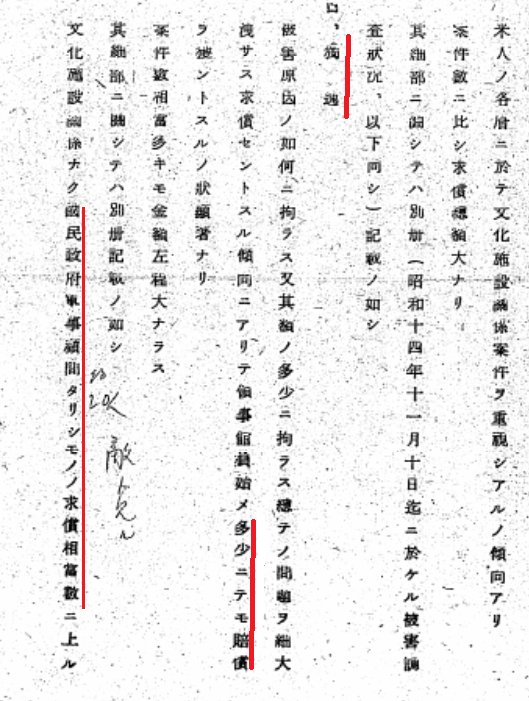 米人ノ各層ニ於テ文化施設關係案件ヲ重視シアルノ傾向アリ
案件數ニ比シ求償總額大ナリ
其細部ニ關シテハ別册(昭和十四年十一月十日迄ニ於ケル被害調
査狀況、以下同シ)記載ノ如シ
ロ、獨逸
被害原因ノ如何ニ拘ラス又其額ノ多少ニ拘ラス總テノ問題ヲ細大
洩サス求償セントスル傾向ニアリテ領事館員始メ多少ニテモ賠償
ヲ獲ントスルノ狀顯著ナリ
案件數相當多キモ金額左程大ナラス
其細部ニ關シテハ別册記載ノ如シ
文化施設關係ナク國民政府軍事顧問タリシモノノ求償相當數ニ上ル